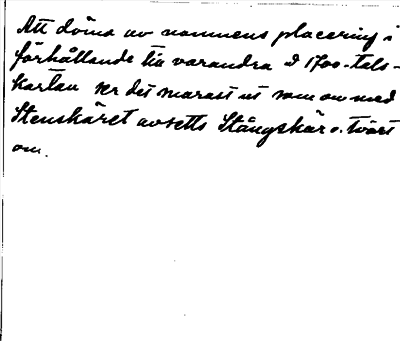 Att döma av namnens placering i
förhållande till varandra å 1700-tals-
kartan ser det närmast ut som om med
Stenskäret avsetts Stångskär o. tvärt
om.